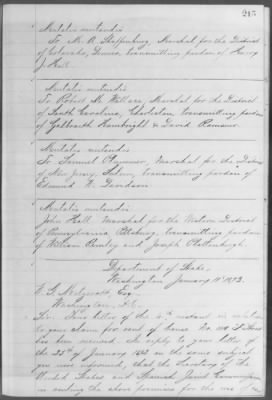 215
Mutatis mutandis
To M. A. Shaffenburg, Marshal for the District
of Colorado, Denver, transmitting pardon of Henry
J. Hall.
Mutatis mutandis
To Robert M. Wallace, Marshal for the District
of South Carolina, Charleston, transmitting pardon
of Galbraith Hambright & David Ramseur
Mutatis mutandis
To Samuel Plummer, Marshal for the District
of New Jersey, Salem, transmitting pardon of
Edmund W. Davidson
Mutatis mutandis
John Hall, Marshal for the Western District
of Pennsylvania Pittsburg, transmitting pardon
of William and Joseph
Department of State,
Washington January 11th 1873.
W. G. Esq.
Washington, D.C.
Sir: Your letter of the 4th instant in relation
to your claim for rent of house No.
has been received. In reply to your letter of
the 23d of January 1872 on the same subject
you were informed, that the Secretary of the
United States and Spanish Joint Commission
in renting the above premises for the use of